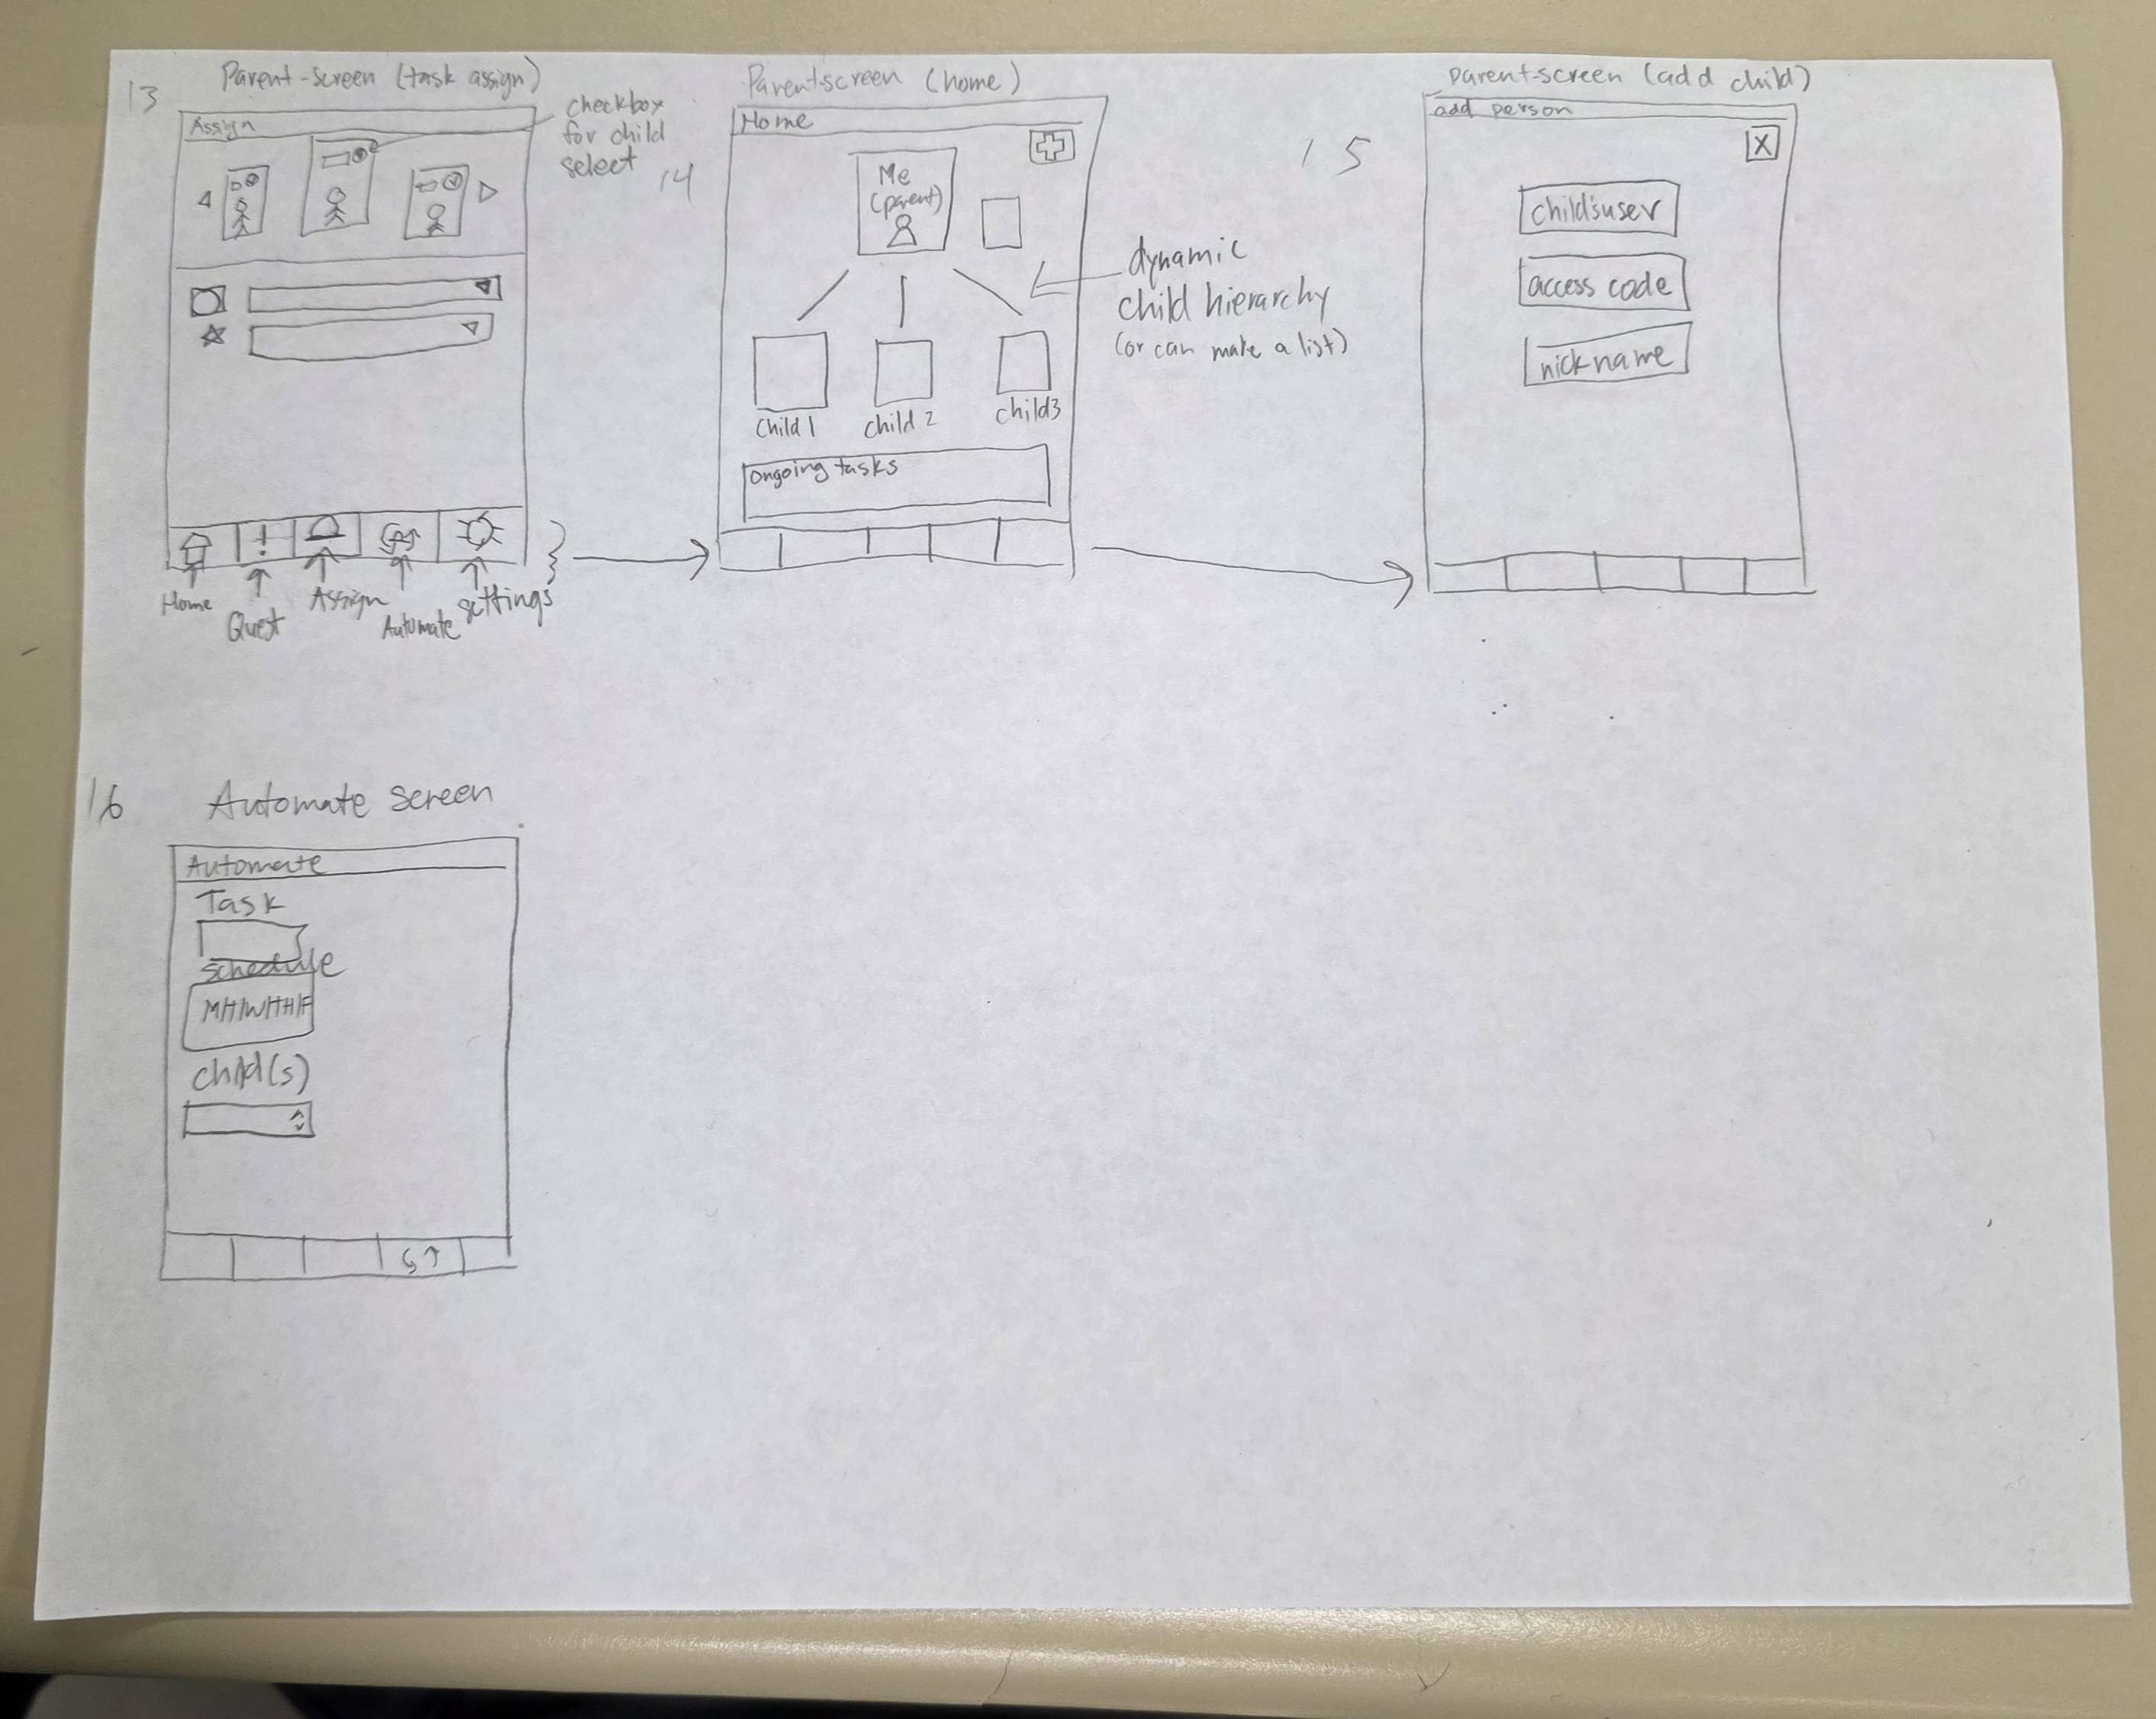 13
Parent-screen (task assign)
Assign
checkbox
for child
select
Home
Quest
Assign
Automate
settings
14
Parentscreen (home)
Home
Me
(parent)
dynamic
child hierarchy
(or can make a list)
child 1
child 2
child3
ongoing tasks
15
parent-screen (add child)
add person
X
child's user
access code
nickname
16
Automate screen
Automate
Task
schedule
child(s)